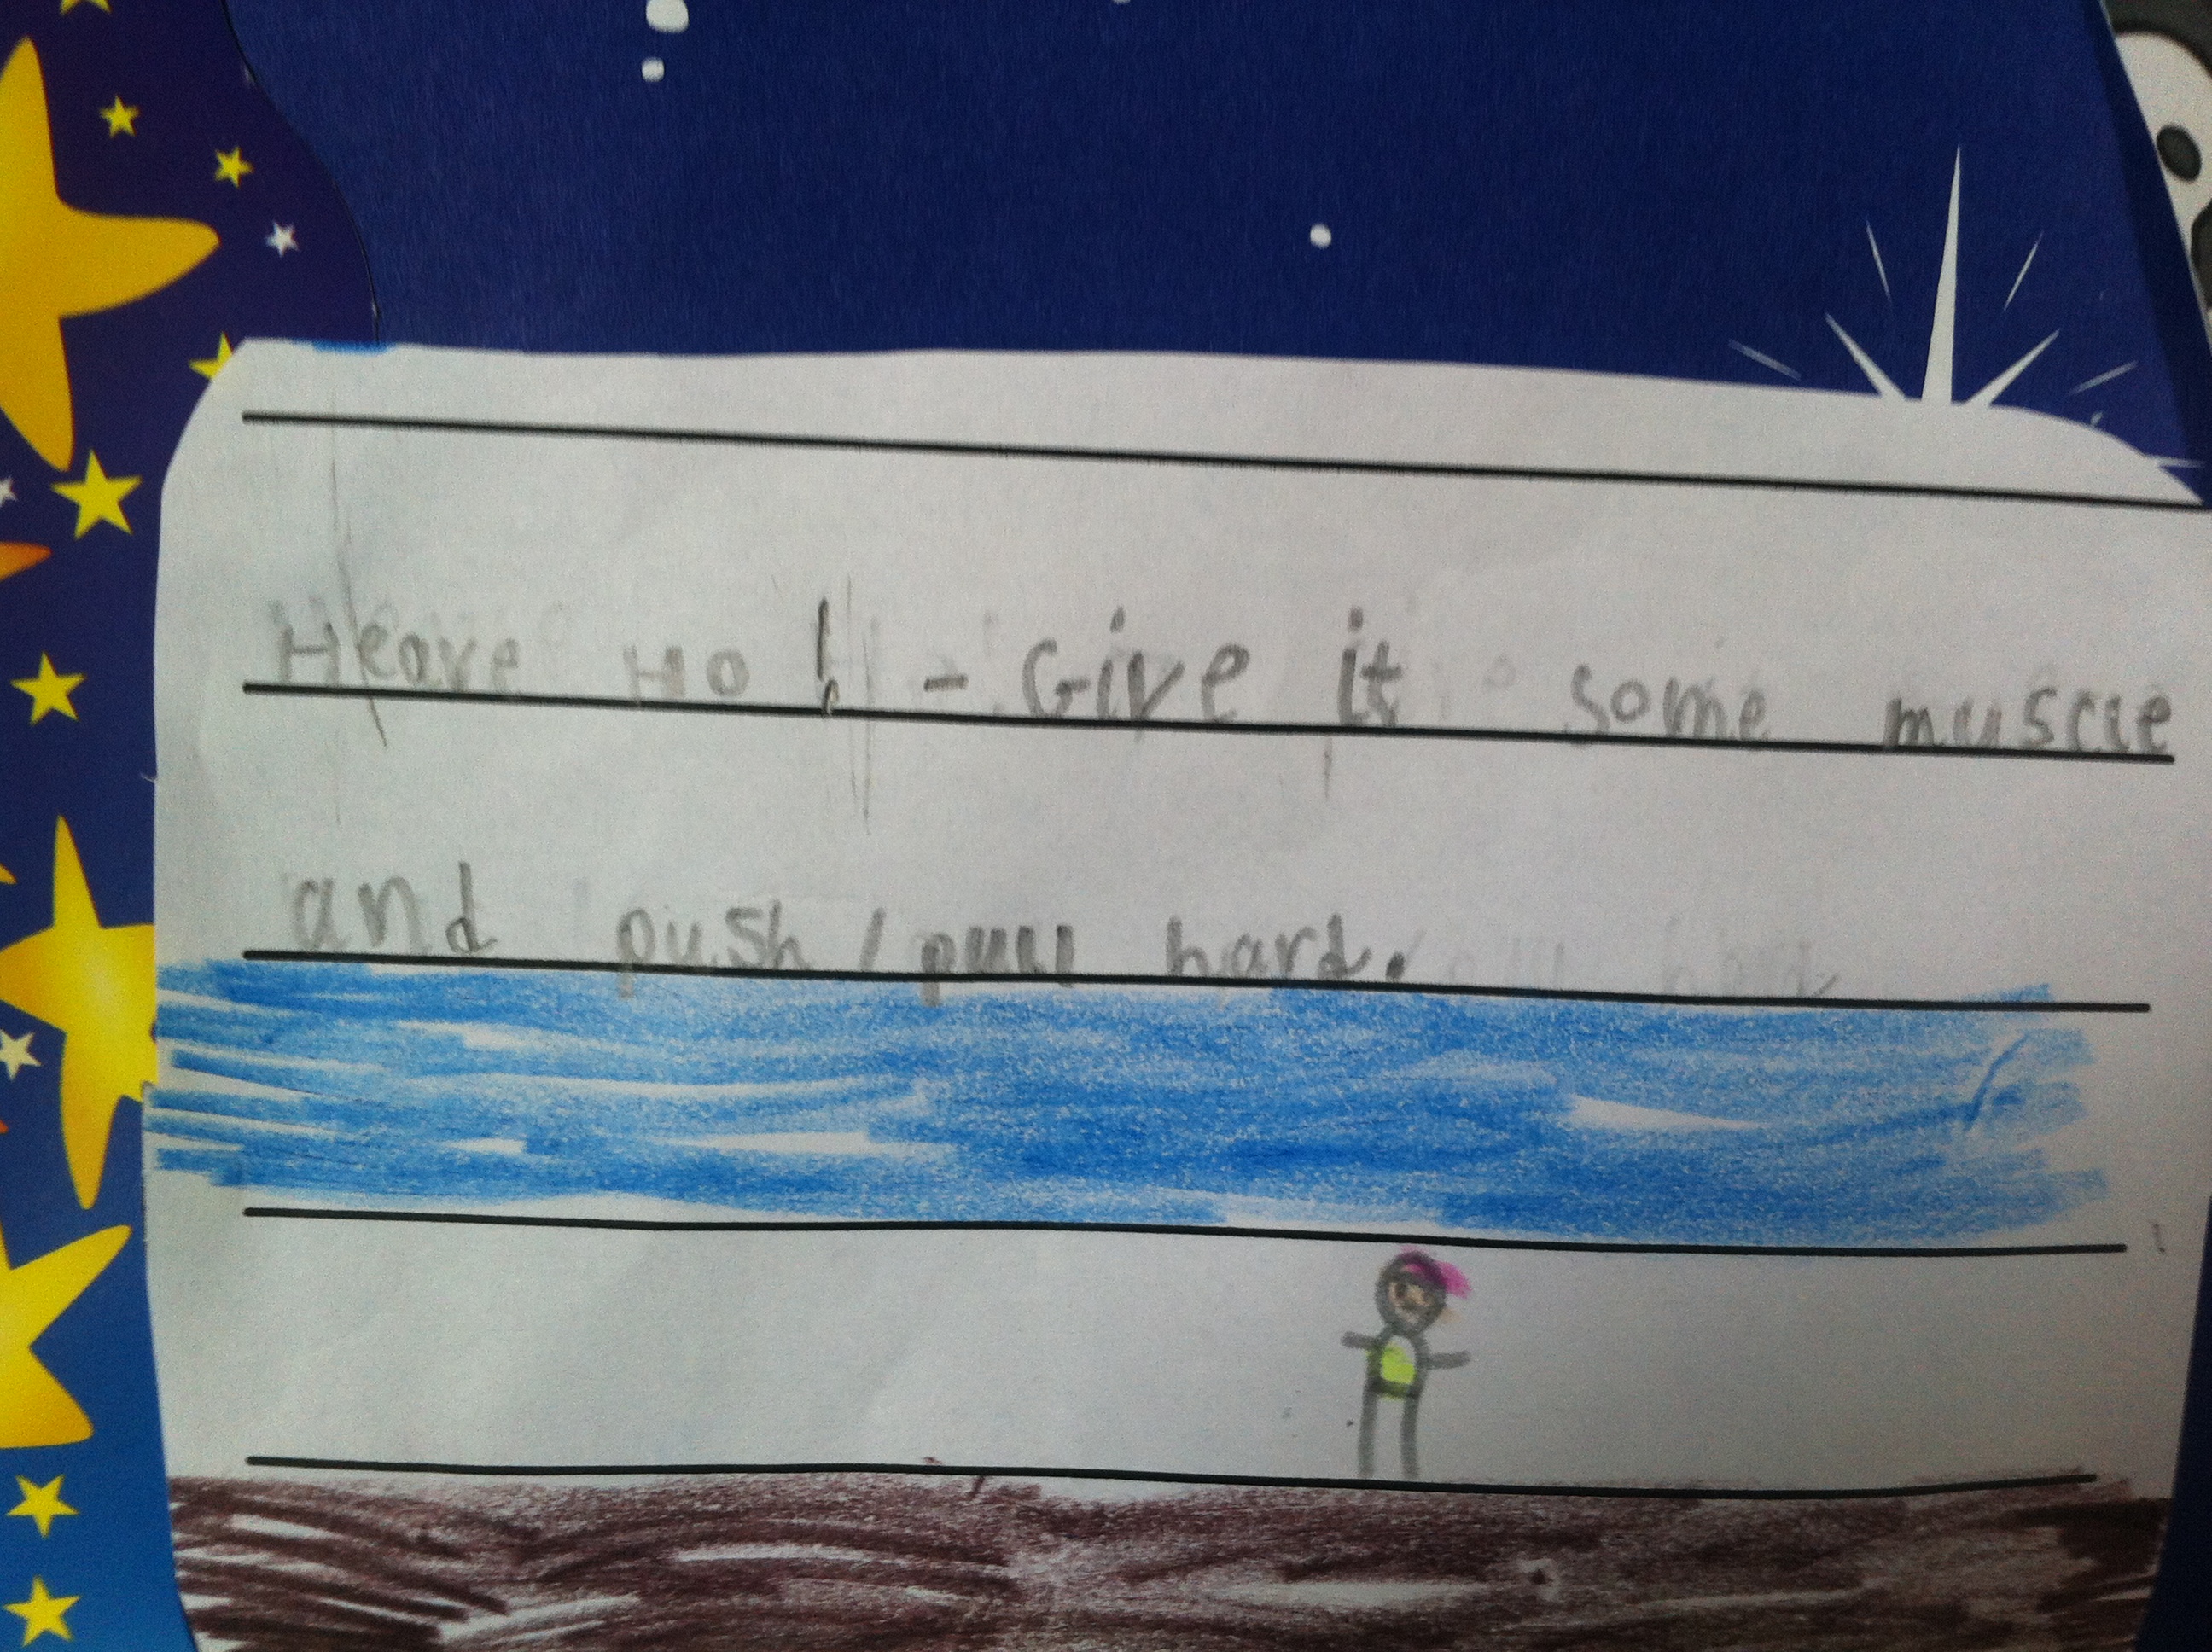 Heave Ho! - Give it some muscle
and push/pull hard.